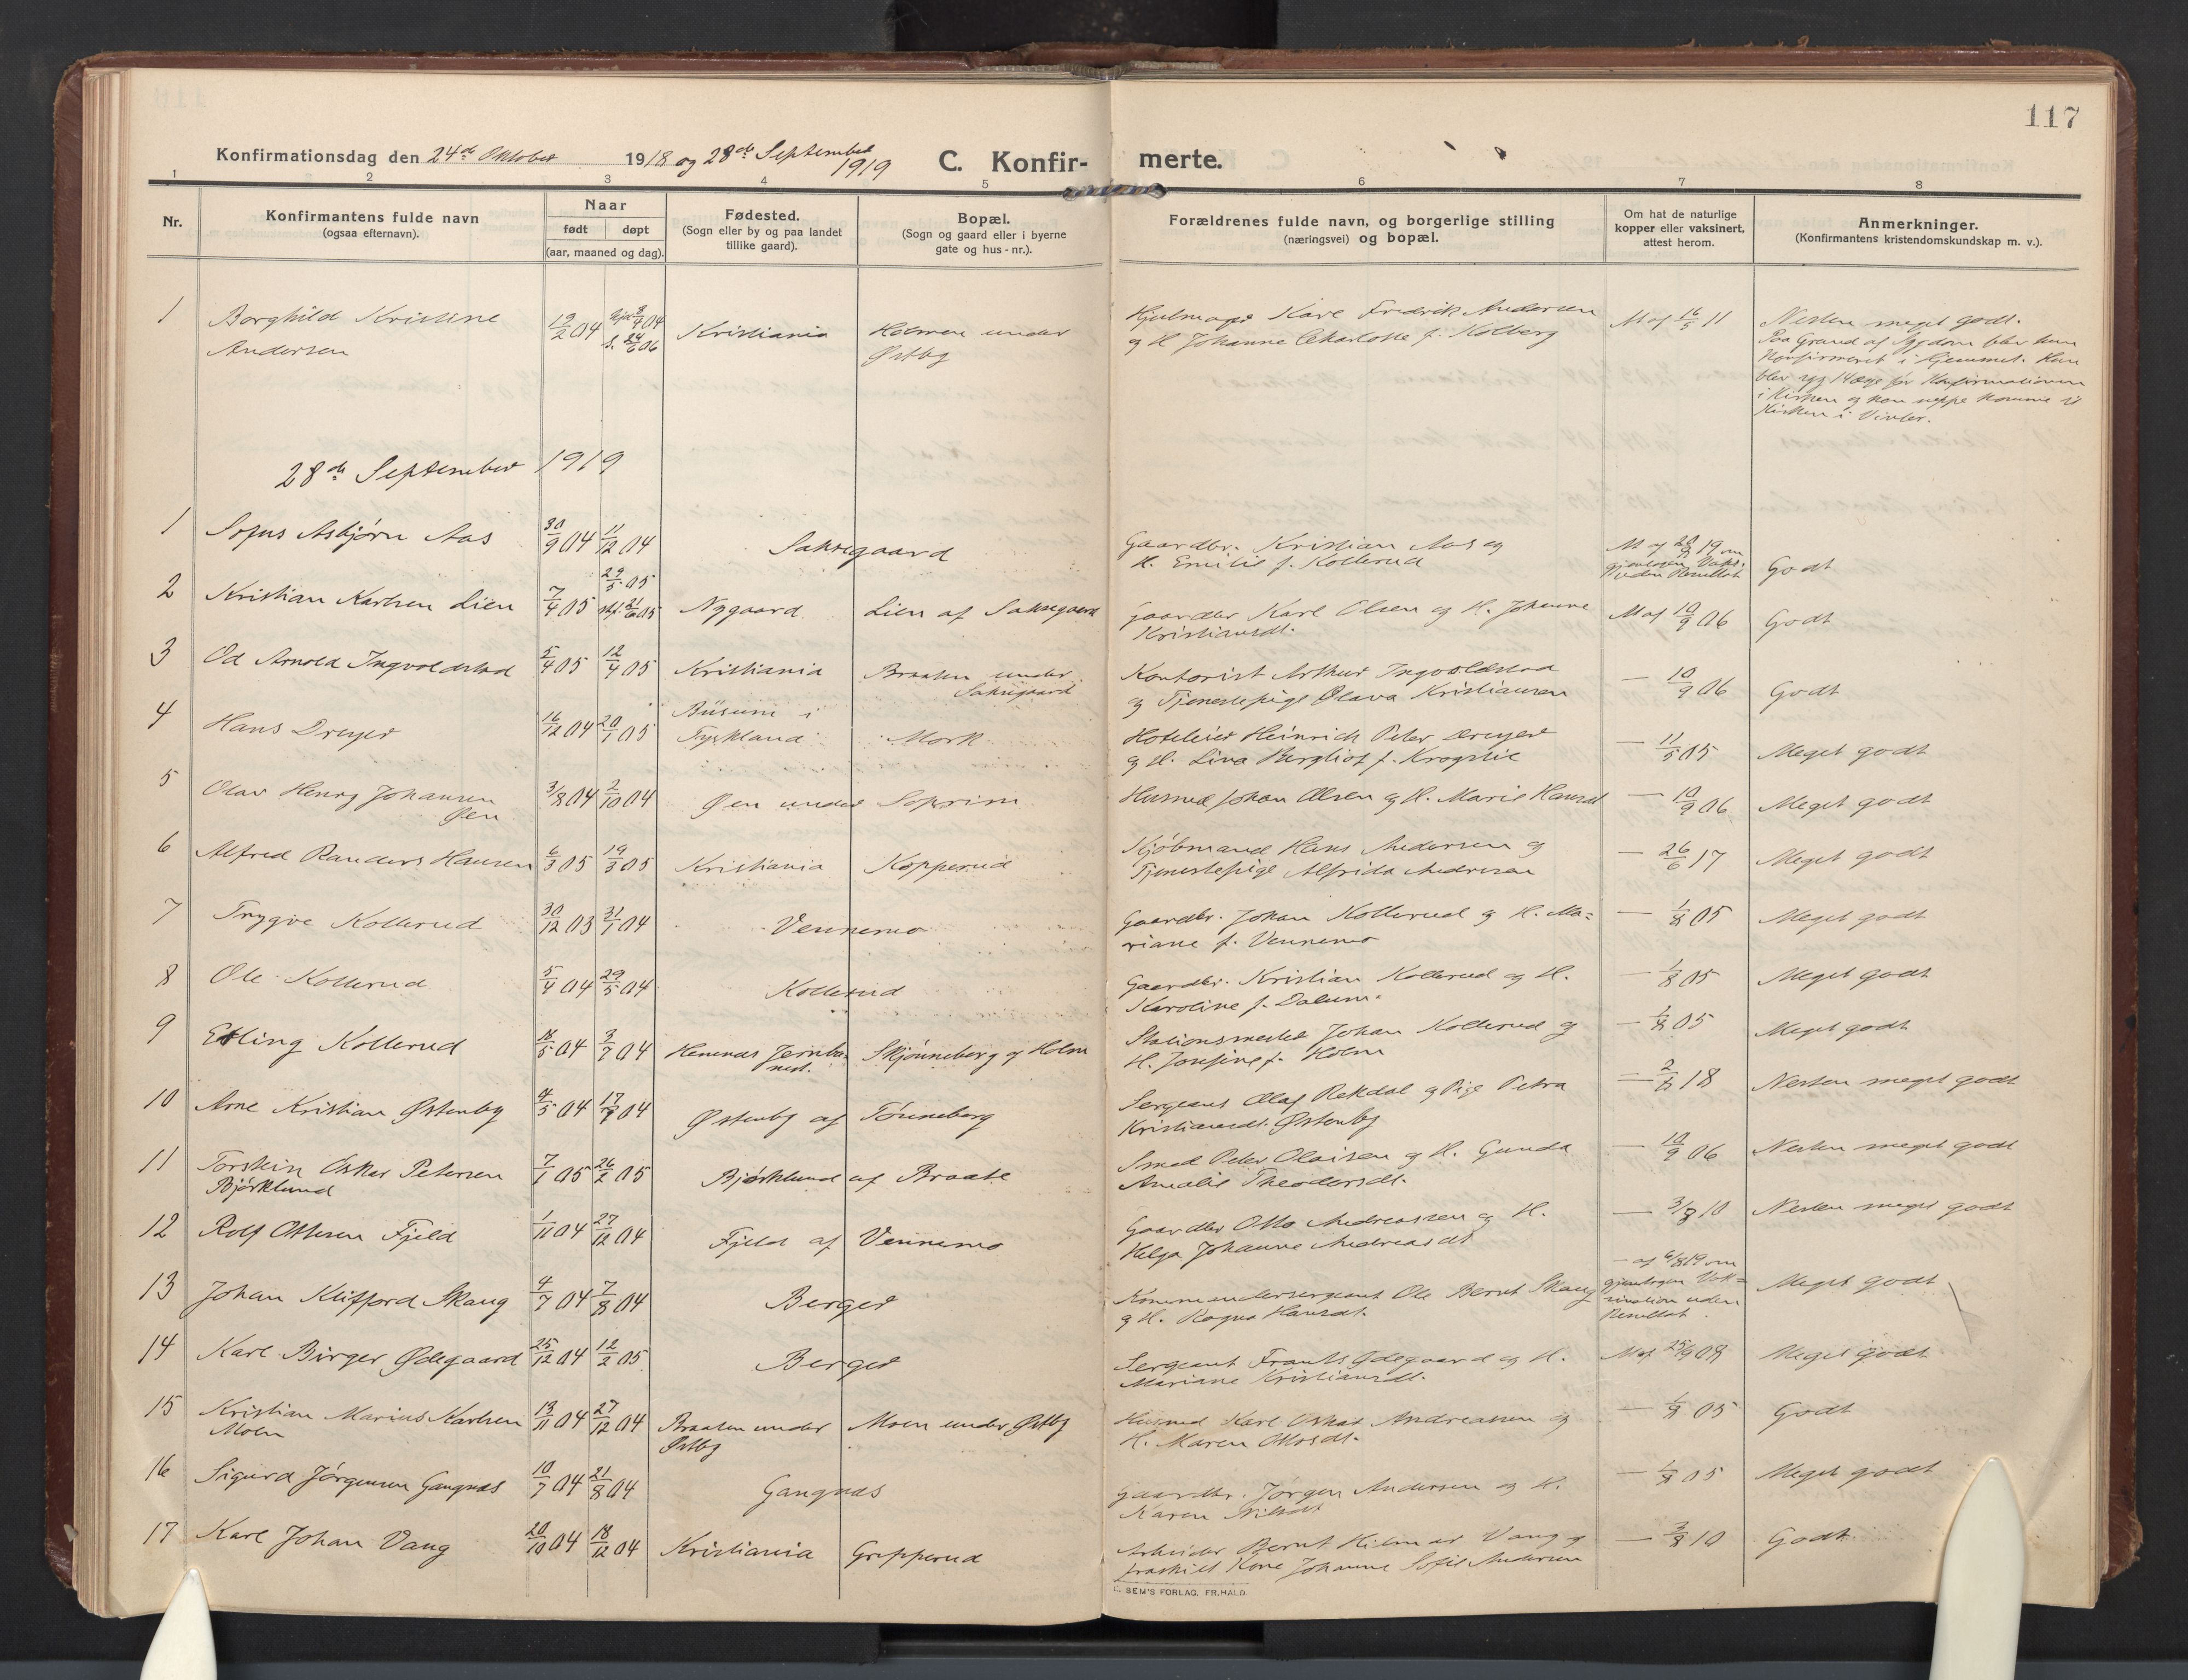 117
Konfirmationsdag den 24de Oktober 1918 og 28de September 1919
C. Konfirmerte.
1 2 3 4 5 6 7 8
Nr.
Konfirmantens fulde navn
(ogsaa efternavn).
Naar
født døpt
(aar, maaned og dag).
Fødested.
(Sogn eller by og paa landet
tillike gaard).
Bopæl.
(Sogn og gaard eller i byerne
gate og hus-nr.).
Forældrenes fulde navn, og borgerlige stilling
(næringsvei) og bopæl.
Om hat de naturlige
kopper eller vaksinert,
attest herom.
Anmerkninger.
(Konfirmantens kristendomskundskap m. v.).
1 Borghild Kristine Andersen 19/2 04 Hjd 3/4 04 S. 24/6 06 Kristiania Holmen under Østby
Karl Fredrik Andersen
og H. Johanne Charlotte f. Kolberg
M af 16/5 11
Nesten meget godt.
Paa Grund af Sygdom blev hun
Konfirmeret i Hjemmet. Hun
blev syg 14 dage før Konfirmationen
i Kirken og kan neppe komme til
Kirken i Vinter.
28de September 1919
1 Sofus Asbjørn Aas 30/9 04 11/12 04 Saksegaard
Gaardbr. Kristian Aas og
H. Emilie f. Kollerud
M af 20/8 19 om
gjentagen Vaks.
uden Resultat
Godt
2 Kristian Karlsen Lien 7/4 05 29/5 05 stf. 21/6 05 Nygaard Lien af Saksegaard
Gaardbr Karl Olsen og H. Johanne
Kristiansdt.
M af 10/9 06 Godt
3 Od Arnold Ingvoldstad 5/4 05 12/4 05 Kristiania Braaten under Saksegaard
Kontorist Arthur Ingvoldstad
og Tjenestepige Olava Kristiansen
— 10/9 06 Godt
4 Hans Dreyer 16/12 04 20/1 05 Büsum i Tyskland Mork
Hoteleier Heinrich Peter Dreyer
og H. Lina Bergliot f. Krogstie
— 11/5 05 Meget godt
5 Olav Henry Johansen Øen 3/8 04 2/10 04 Øen under Soprim
Husmd Johan Olsen og H. Marie Hansdt
— 10/9 06 Meget godt
6 Alfred Randers Hansen 6/3 05 19/3 05 Kristiania Kopperud
Kjøbmand Hans Andersen og
Tjenestepige Alfrida Andresen
— 26/6 17 Meget godt
7 Trygve Kollerud 30/12 03 31/1 04 Vennemo
Gaardbr. Johan Kollerud og H. Ma=
riane f. Vennemo
— 1/8 05 Meget godt
8 Ole Kollerud 5/4 04 29/5 04 Kollerud
Gaardbr. Kristian Kollerud og H.
Karoline f. Dalum.
— 1/8 05 Meget godt
9 Erling Kollerud 18/5 04 3/7 04 Skjønneberg og Holm
Stationsmester Johan Kollerud og
H. Josfine f. Holm
— 1/8 05 Meget godt
10 Arne Kristian Østenby 4/5 04 17/7 04 Østenby af Tønneberg
Sergeant Olaf Rekdal og Pige Petra
Kristiansdt. Østenby
— 2/8 18 Nesten meget godt
11 Torstein Oskar Petersen Bjørklund 7/1 05 26/2 05 Bjørklund af Braate
Smed Peter Olaisen og H. Gunda
Amalie Theodorsdt.
— 10/9 06 Nesten meget godt
12 Rolf Ottesen Fjeld 1/11 04 27/12 04 Fjeld af Vennemo
Gaardbr Otto Andreassen og H.
Helga Johanne Andreasdt
— 3/8 10 Nesten meget godt
13 Johan Klifford Skaug 4/7 04 7/8 04 Berger
Kommandersergeant Ole Bernt Skaug
og H. Ragna Hansdt.
— af 6/8 19 om
gjentagen Vak=
sination uden
Resultat
Meget godt
14 Karl Birger Ødegaard 25/12 04 12/2 05 Berger
Sergeant Frants Ødegaard og H.
Mariane Kristiansdt.
M af 25/9 08 Meget godt
15 Kristian Marius Karlsen Moen 13/11 04 27/12 04 Braaten under Østby Moen under Østby
Husmd Karl Oskar Andreassen og
H. Maren Ottosdt.
— 1/8 05 Godt
16 Sigurd Jørgensen Gangnæs 10/7 04 21/8 04 Gangnæs
Gaardbr. Jørgen Andersen og H.
Karen Nilsdt
— 1/8 05 Meget godt
17 Karl Johan Vang 20/10 04 18/12 04 Kristiania Gripperud
Arbeider Bernt Hilmar Vang og
fraskilt Kone Johanne Sofie Andersen
— 3/8 10 Godt
SEM'S FORLAG. FR.HALD.